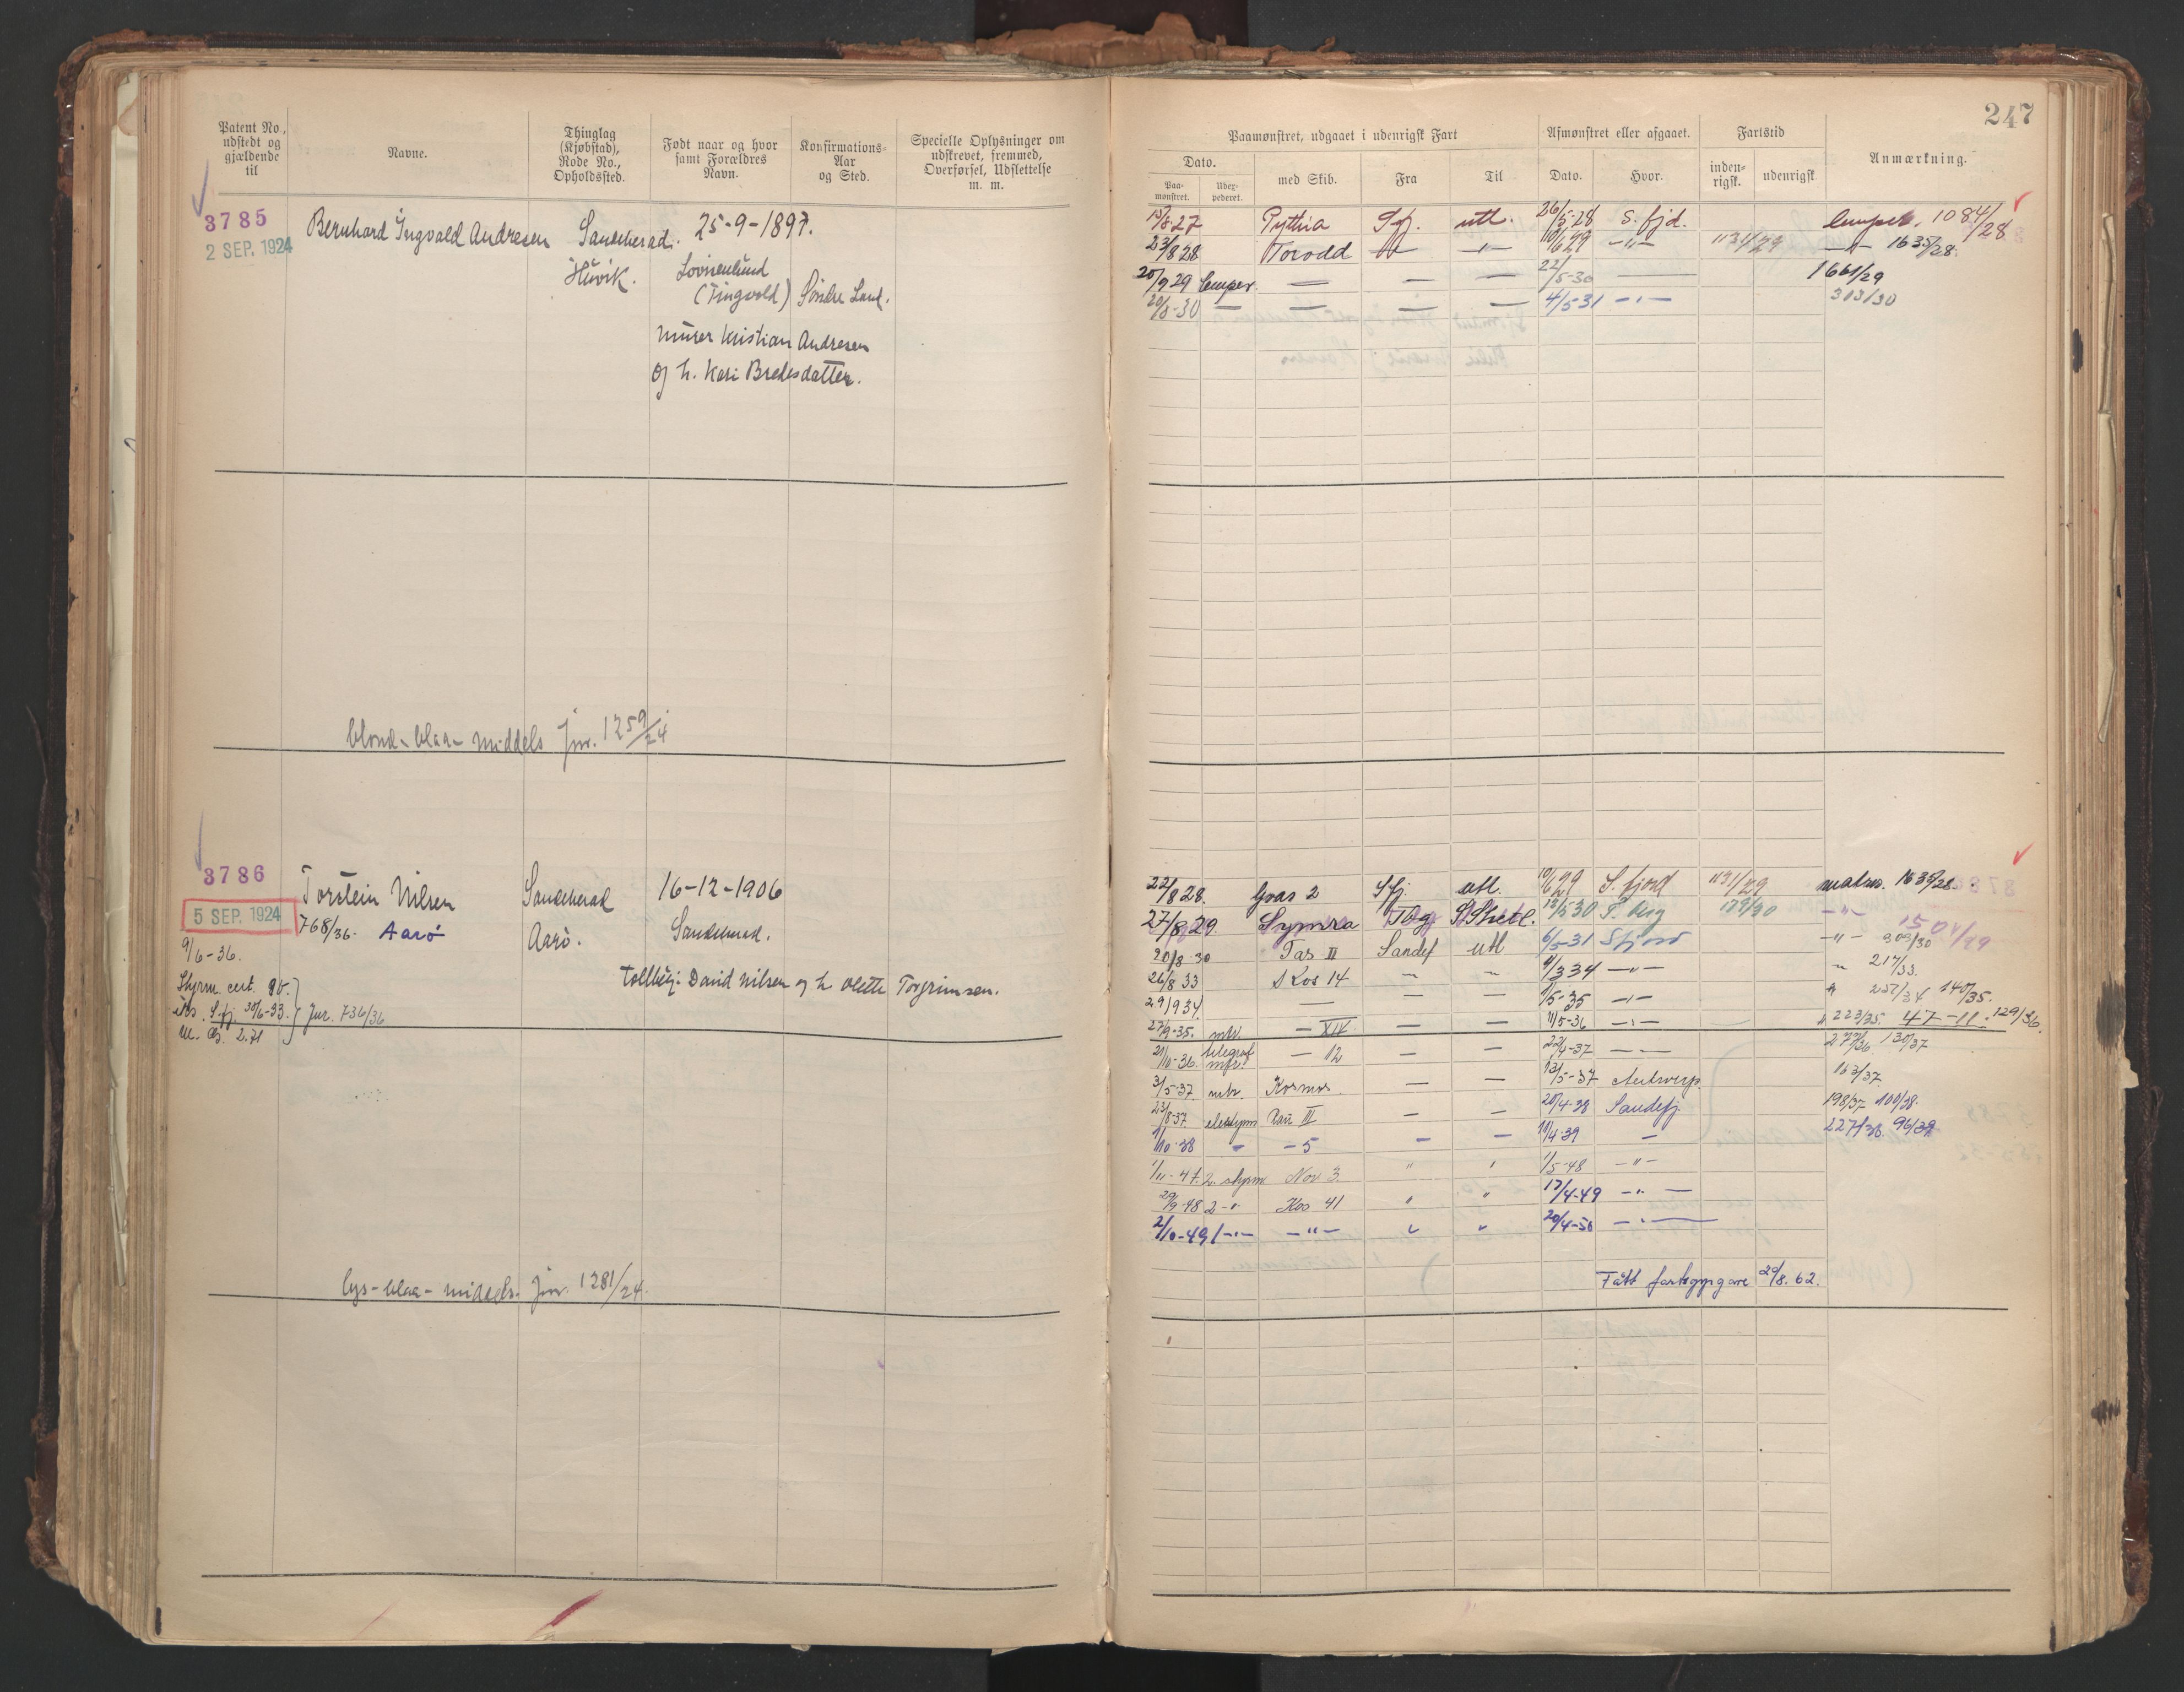 247
Patent No., udstedt og gjældende til
Navne.
Thinglag (Kjøbstad), Rode No., Opholdssted.
Født naar og hvor samt Forældres Navn.
Konfirmations-Aar og Sted.
Specielle Oplysninger om udskrevet, fremmed, Overførsel, Udslettelse m. m.
Paamønstret, udgaaet i udenrigsk Fart
Afmønstret eller afgaaet.
Fartstid
Anmærkning.
Dato.
med Skib.
Fra
Til
Dato.
Hvor.
inden-rigsk.
udenrigsk
Paa-mønstret.
Udex-pederet.
3785
2 SEP. 1924
Bernhard Ingvald Andresen
Sandeherad.
Huvik.
25-9-1897.
Lovisenlund
(Tingvold) Søndre Land.
murer Kristian Andresen
og h. Kari Bredesdatter.
blond - blaa - middels jnr. 1259/24
15/8-27 Pythia Sfj. utl. 26/5-28 S. fjd. 1084/28
23/8 28 Torodd — -"- 10/6 29 -"- 1134/29 -"- 1635/28.
20/9 29 — — — 22/5-30 — 1661/29
20/8-30 — — — — 4/5-31 -"- 313/30
3786
5 SEP. 1924
Torstein Nilsen
768/36. Aarø
9/6-36.
Sandeherad
Aarø.
16-12-1906
Sandeherad.
David Nilsen og h Olette Torgrimsen.
Styrm. cert.
S.fj. 30/6-33. Jnr. 736/36
lys - blaa - middels. jnr. 1281/24.
22/8 28. Graas 2 Sfj. utl. 10/6 29 S. fjord 1131/29 matr. 1639/28.
27/8 29 Symra Tbg S Shetl. 12/5 30 T. berg 179/30 -"- 1501/29
20/8-30 Tas III Sandef utl 6/5-31 Sfjord -"- 309/30
26/8 33 Kos 14 — — -"- 217/33.
29/9 34. — — — 1/5-35 -"- 252/34 140/35.
27/9-35. mtr. — XIV — — 11/5-36 -"- 223/35. 47-11. 129/36.
21/10-36. telegraf — 12 — — 22/4-37 — 130/37
3/5-37. mtr. Kosmos — — 12/5-37 Antwerp. 163/37
23/8-37 Rau III — — 20/4-38 Sandefj. 198/37 100/38.
1/10-38 " — 5 — — 11/4-39 — 227/38. 96/39
1/11-47. 2. styrm Nor 3. " " 1/5-48 -"-
29/9-48 2 -"- Kos 41 " " 17/4-49 -"-
2/10-49 1 -"- -"- " " 20/4-50 -"-
Fått fartsoppgave 29/8. 62.